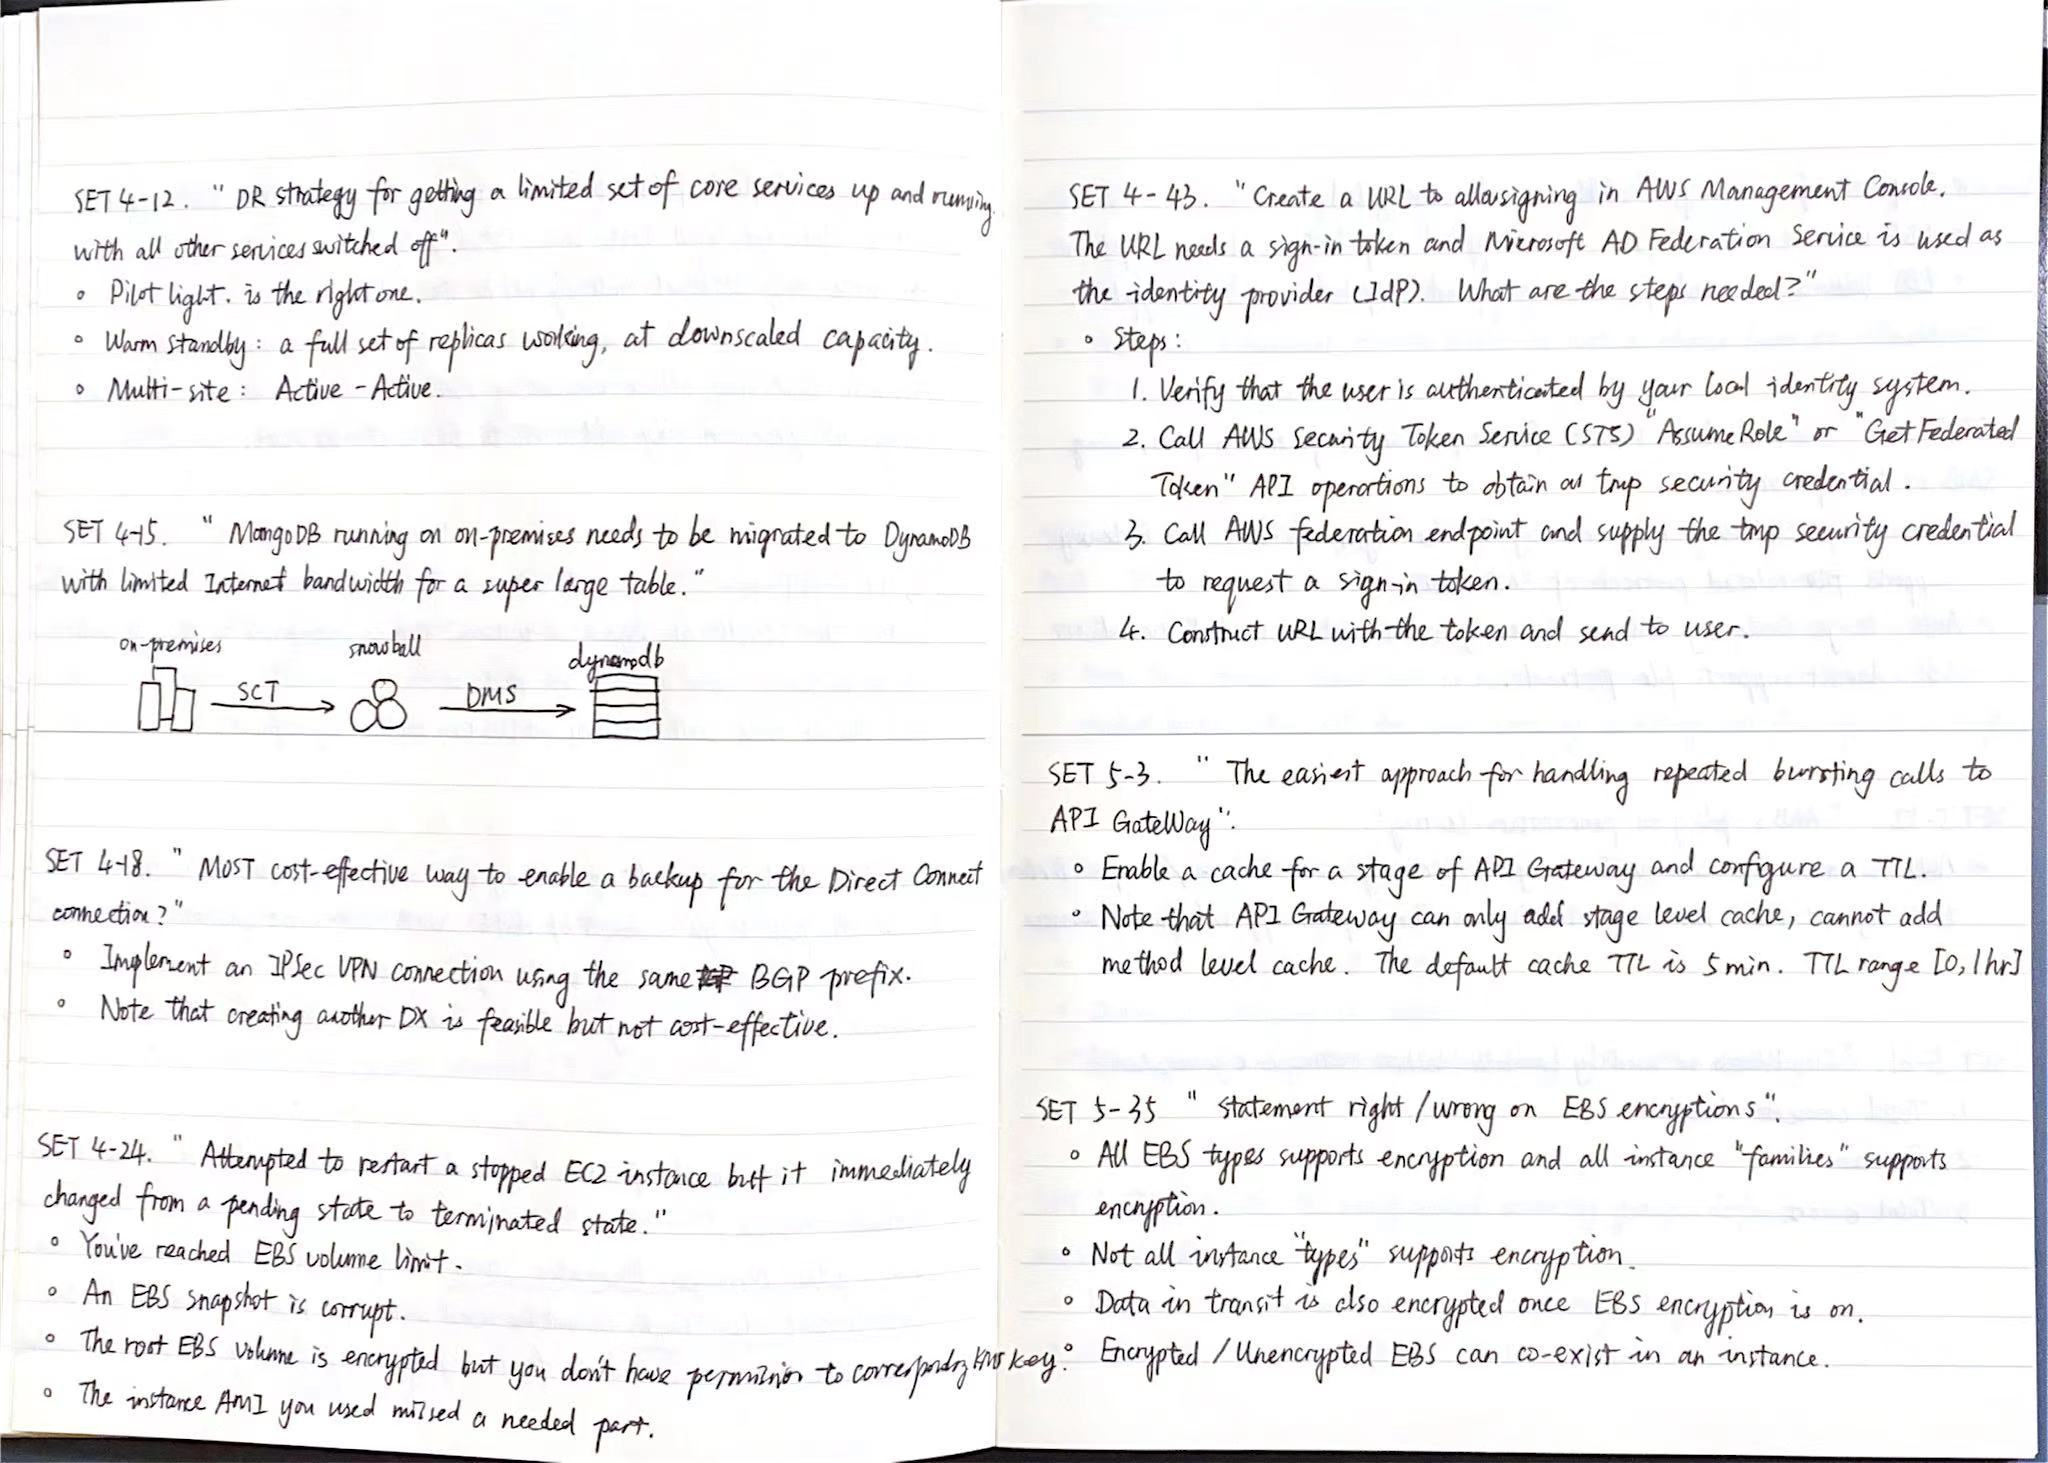 SET 4-12. " DR strategy for getting a limited set of core services up and running
with all other services switched off".
◦ Pilot light. is the right one.
◦ Warm standby: a full set of replicas working, at downscaled capacity.
◦ Multi-site: Active - Active.
SET 4-15. " MongoDB running on on-premises needs to be migrated to DynamoDB
with limited Internet bandwidth for a super large table."
on-premises snowball dynamodb
SCT DMS
SET 4-18. " MOST cost-effective way to enable a backup for the Direct Connect
connection?"
◦ Implement an IPSec VPN connection using the same BGP prefix.
◦ Note that creating another DX is feasible but not cost-effective.
SET 4-24. " Attempted to restart a stopped EC2 instance but it immediately
changed from a pending state to terminated state."
◦ You've reached EBS volume limit.
◦ An EBS snapshot is corrupt.
◦ The root EBS volume is encrypted but you don't have permission to corresponding KMS key.
◦ The instance AMI you used missed a needed part.
SET 4-43. "Create a URL to allow signing in AWS Management Console.
The URL needs a sign-in token and Microsoft AD Federation Service is used as
the identity provider (IdP). What are the steps needed?"
◦ Steps:
1. Verify that the user is authenticated by your local identity system.
2. Call AWS Security Token Service (STS) "AssumeRole" or "GetFederated
Token" API operations to obtain a tmp security credential.
3. Call AWS federation endpoint and supply the tmp security credential
to request a sign-in token.
4. Construct URL with the token and send to user.
SET 5-3. " The easiest approach for handling repeated bursting calls to
API GateWay".
◦ Enable a cache for a stage of API Gateway and configure a TTL.
◦ Note that API Gateway can only add stage level cache, cannot add
method level cache. The default cache TTL is 5 min. TTL range [0, 1hr]
SET 5-35 " statement right / wrong on EBS encryptions".
◦ All EBS types supports encryption and all instance "families" supports
encryption.
◦ Not all instance "types" supports encryption.
◦ Data in transit is also encrypted once EBS encryption is on.
◦ Encrypted / Unencrypted EBS can co-exist in an instance.